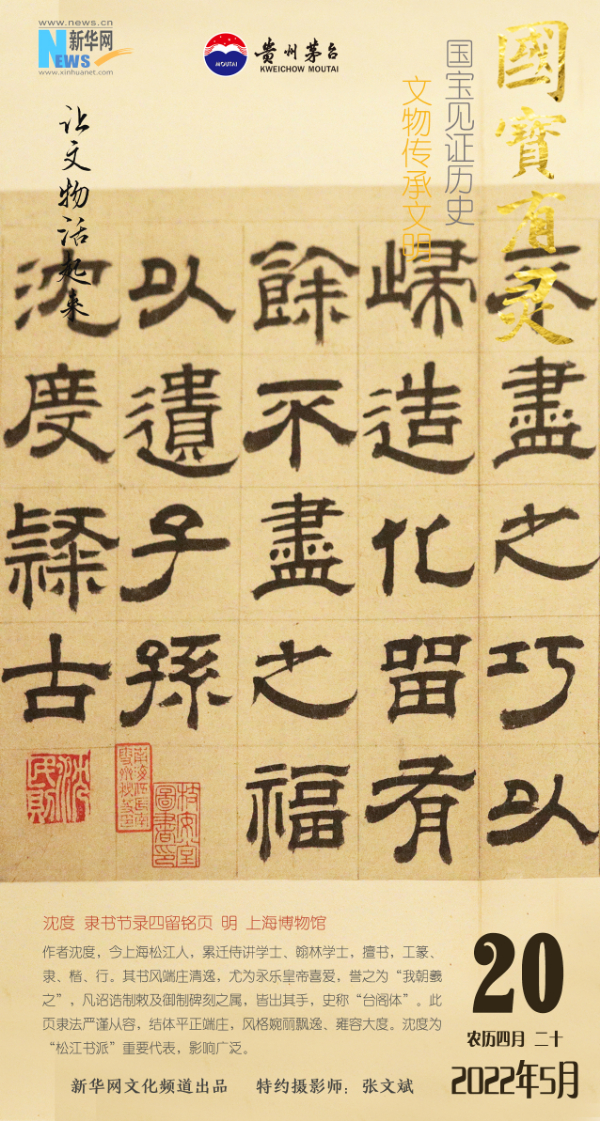 www.news.cn
新华网
NEWS
www.xinhuanet.com
MOUTAI
贵州茅台
KWEICHOW MOUTAI
國寶有灵
国宝见证历史
文物传承文明
让文物活起来
不盡之巧以
歸造化留有
餘不盡之福
以遺子孫
沈度隸古
沈民則
沈度 隶书节录四留铭页 明 上海博物馆
作者沈度，今上海松江人，累迁侍讲学士、翰林学士，擅书，工篆、
隶、楷、行。其书风端庄清逸，尤为永乐皇帝喜爱，誉之为“我朝羲
之”，凡诏诰制敕及御制碑刻之属，皆出其手，史称“台阁体”。此
页隶法严谨从容，结体平正端庄，风格婉丽飘逸、雍容大度。沈度为
“松江书派”重要代表，影响广泛。
新华网文化频道出品 特约摄影师：张文斌
20
农历四月 二十
2022年5月